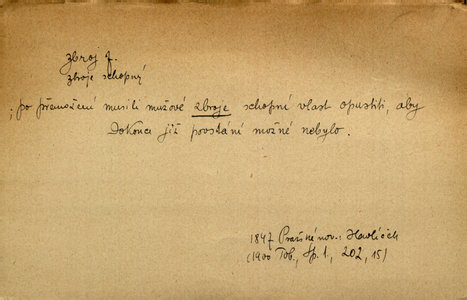 zbroj f.
zbroje schopný
; po přemožení musili mužové zbroje schopní vlast opustiti, aby
dokonce již povstání možné nebylo.
1847 Pražské nov.; Havlíček
(1900 Tob., Sp. 1, 202, 15)